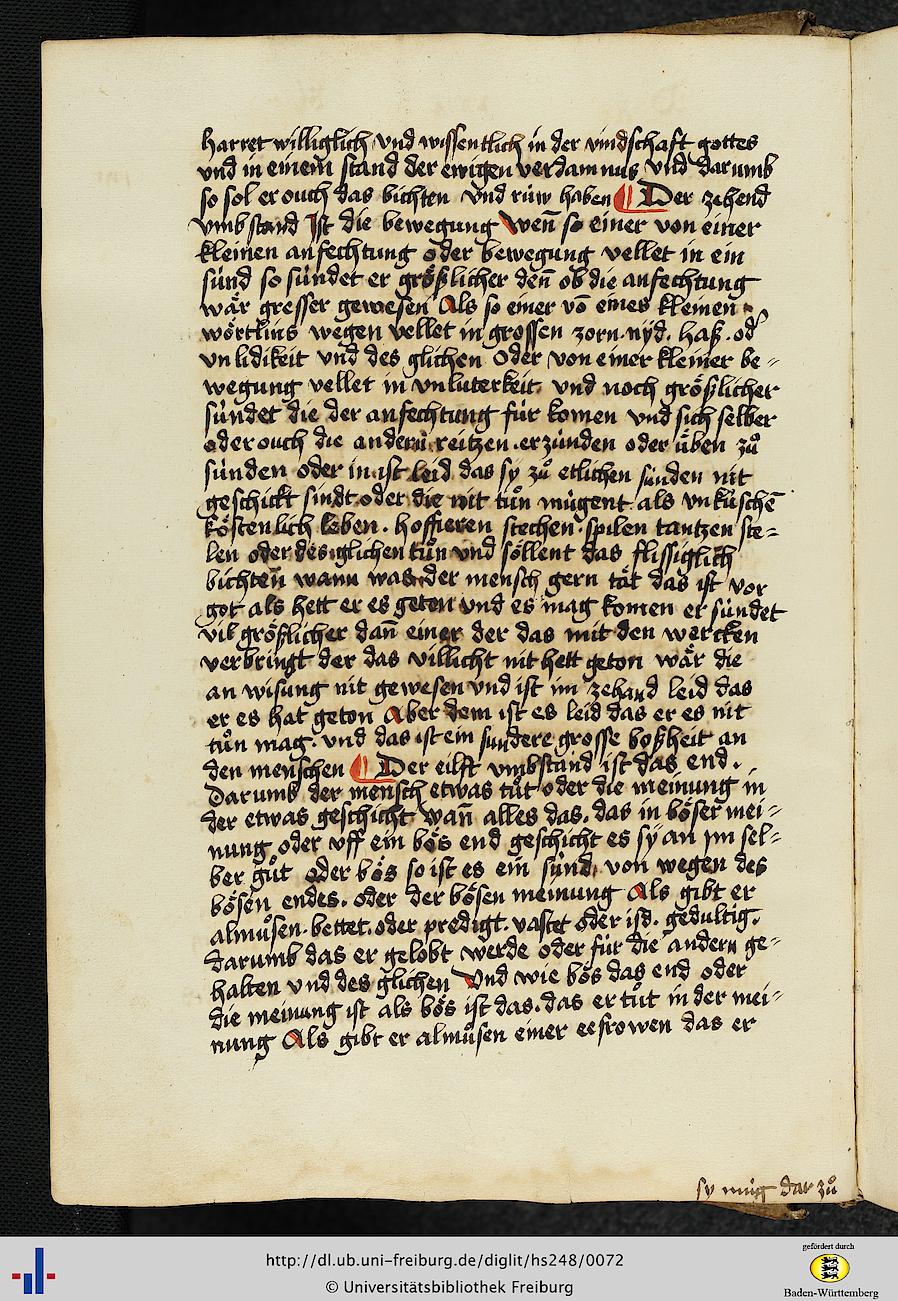 harret williglich und wissentlich in der vindschaft gottes
und in einem stand der ewigen verdamnus und darumb
so sol er ouch das bichten und rüw haben ¶ Der zehend
vmbstand Ist die bewegung Wen̄ so einer von einer
kleinen anfechtung oder bewegung vellet in ein
sünd so sündet er größlicher den̄ ob die anfechtung
wär gresser gewesen Als so einer vō eines kleinen
wörtlins wegen vellet in grossen zorn. nyd. haß. od᷑
vnlidikeit und des glichen Oder von einer kleiner be-
wegung vellet in vnluterkeit und noch größlicher
sündet die der anfechtung für komen und sich selber
oder ouch die andern reitzen. erzünden oder üben zuͦ
sünden oder in ist leid das sy zuͦ etlichen sünden nit
geschickt sindt oder die nit tuͦn mügent als vnküschē
köstenlich leben. hoffieren stechen. spilen tantzen ste-
len oder des glichen tuͦn und söllent das flissiglich
bichten wann was der mensch gern tät das ist vor
got als hett er es geton und es mag komen er sündet
vil größlicher dan̄ einer der das mit den wercken
verbringt der das villicht nit hett geton wär die
an wisung nit gewesen und ist im zehand leid das
er es hat geton Aber dem ist es leid das er es nit
tuͦn mag. und das ist ein sundere grosse boßheit an
den menschen ¶ Der eilft vmbstand ist das end.
Darumb der mensch etwas tuͦt oder die meinung in
der etwas geschicht wan̄ alles das. das in böser mei-
nung oder vff ein bös end geschicht es sy an im sel-
ber guͦt oder bös so ist es ein sünd. von wegen des
bösen endes. oder der bösen meinung Als gibt er
almuͦsen. bettet. oder predigt. vastet oder ist. gedultig.
darumb das er gelobt werde oder für die andern ge-
halten und des glichen Und wie bös das end oder
die meinung ist als bös ist das. das er tuͦt in der mei-
nung Als gibt er almuͦsen einer eefrowen das er
sy müg dar zuͦ
http://dl.ub.uni-freiburg.de/diglit/hs248/0072
© Universitätsbibliothek Freiburg
gefördert durch
Baden-Württemberg